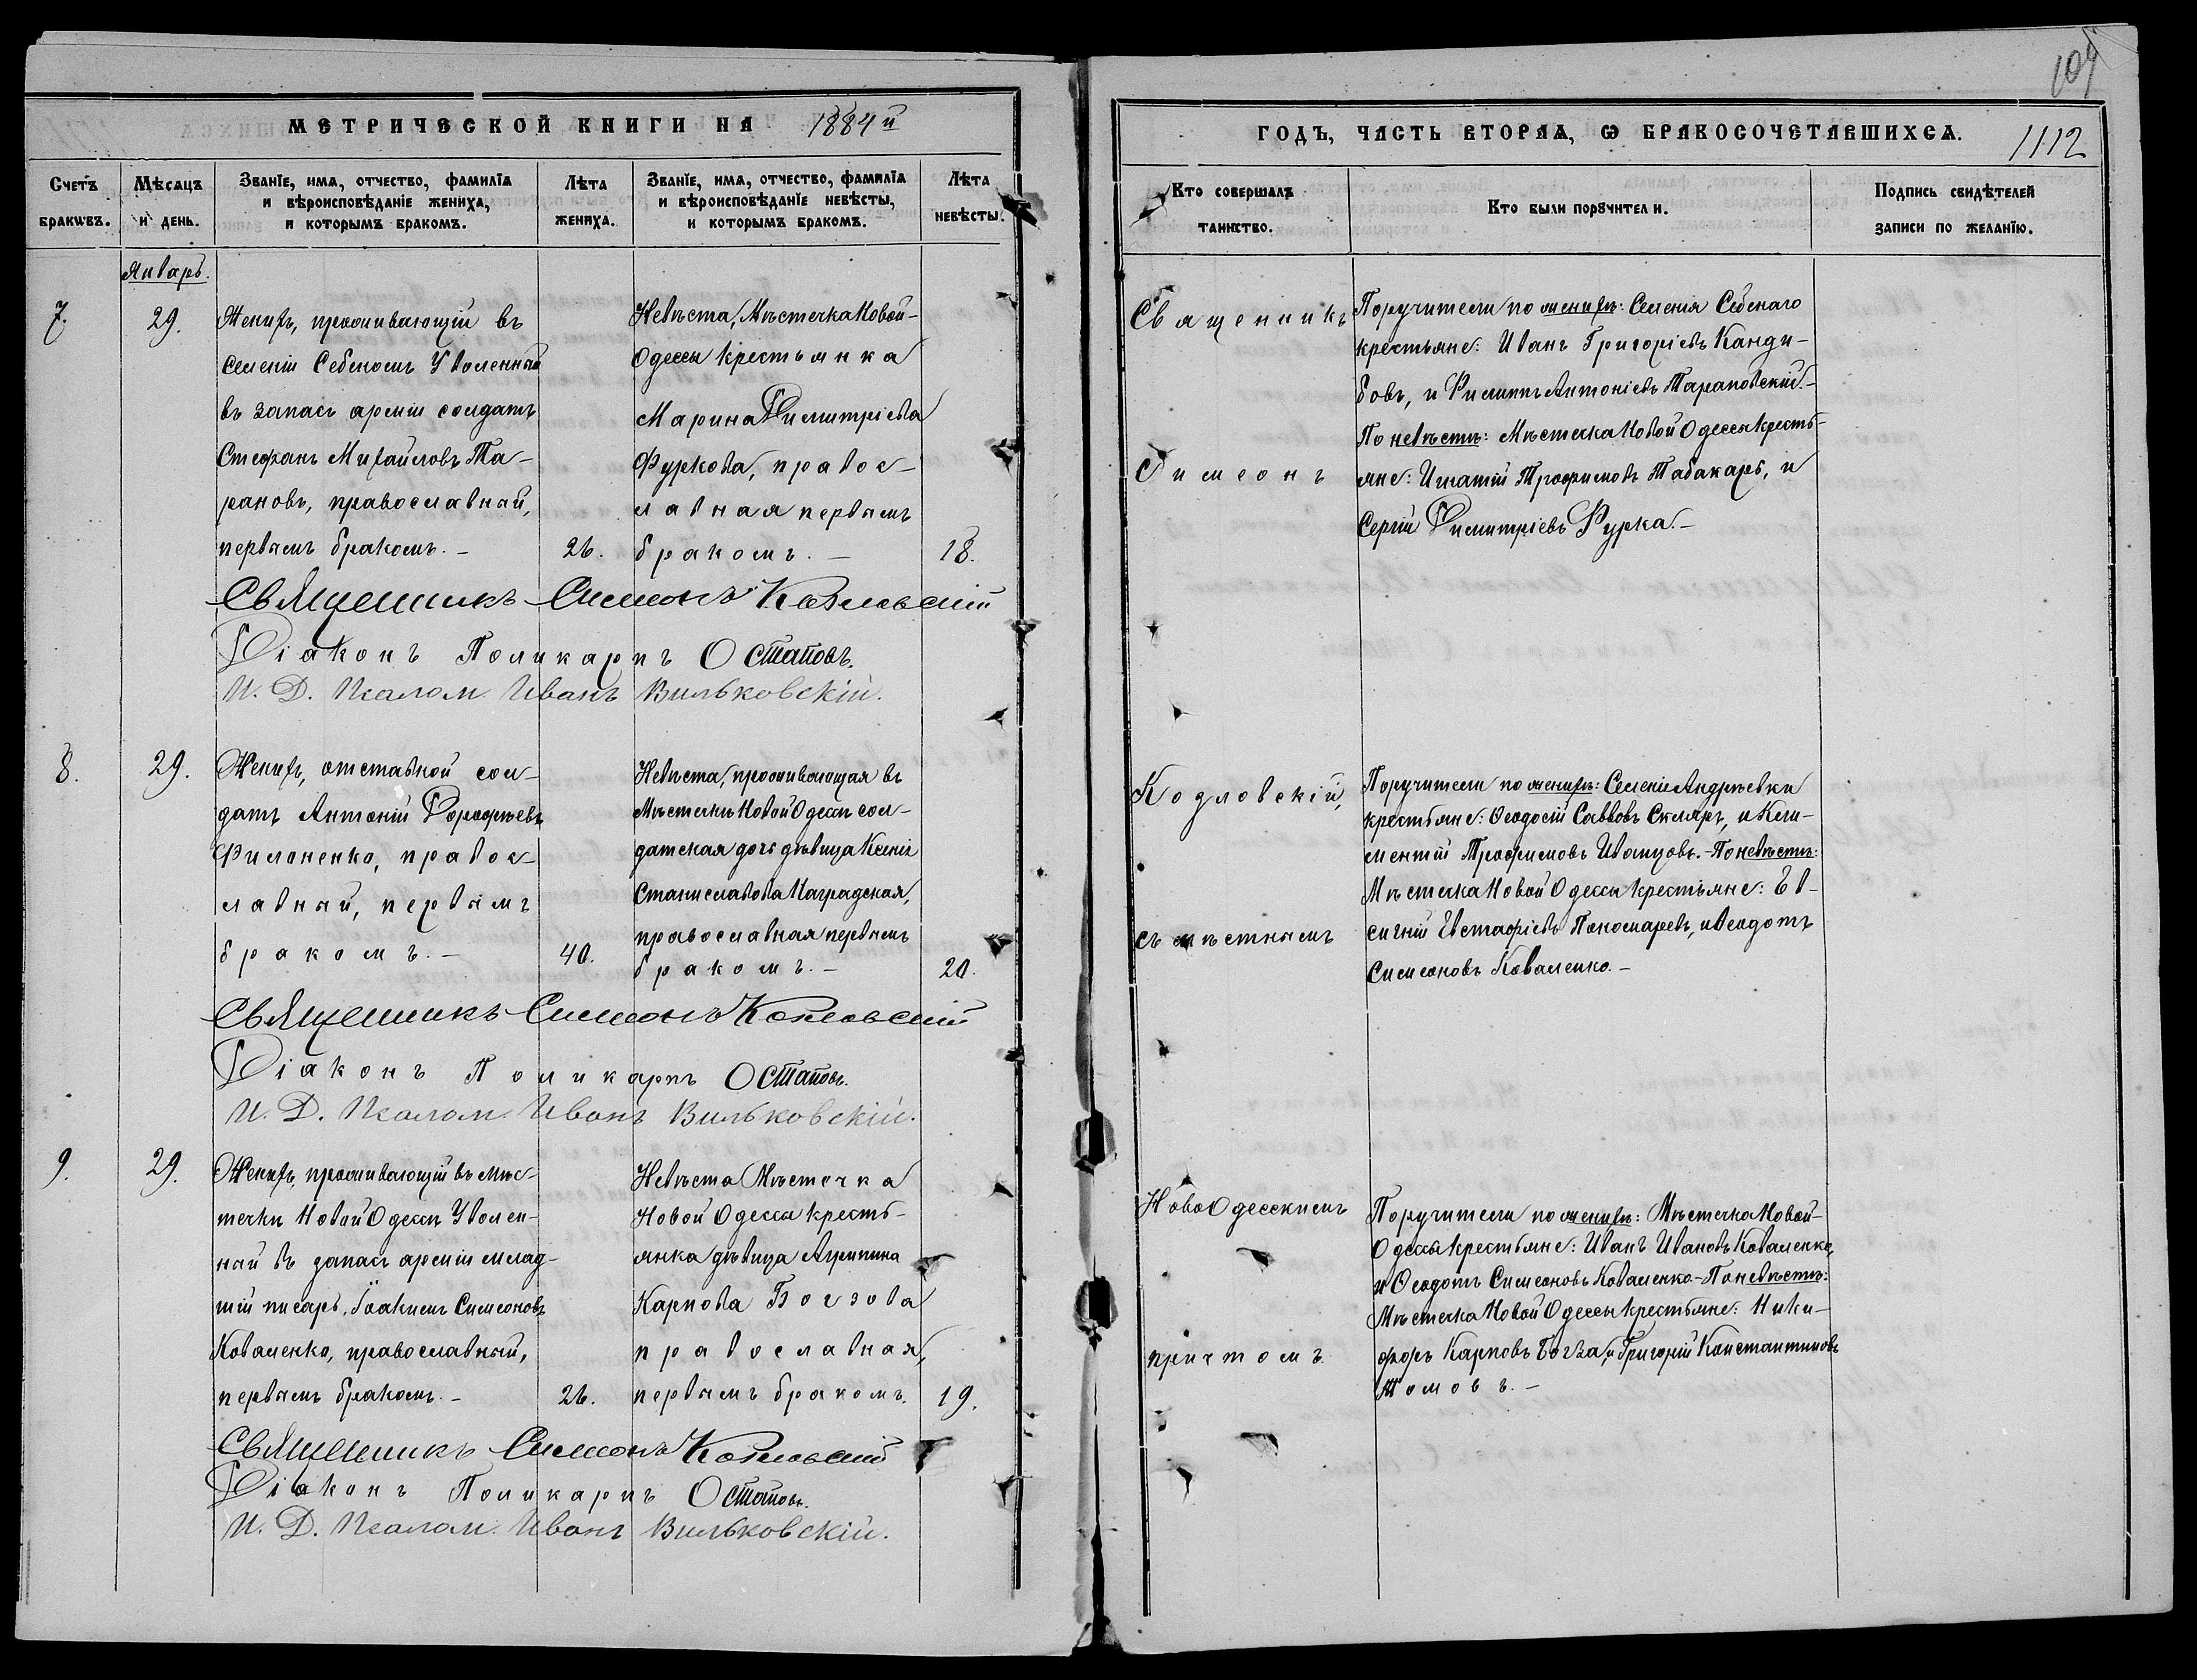 109
МЕТРИЧЕСКОЙ КНИГИ НА 1884й
ГОДЪ, ЧАСТЬ ВТОРАЯ, Ѡ БРАКОСОЧЕТАВШИХСЯ. 1112
Счетъ бракѡвъ.
Мѣсяцъ и день.
Званїе, имя, отчество, фамилїя и вѣроисповѣданїе жениха, и которымъ бракомъ.
Лѣта жениха.
Званїе, имя, отчество, фамилїя и вѣроисповѣданїе невѣсты, и которымъ бракомъ.
Лѣта невѣсты.
Кто совершалъ таинство.
Кто были порꙋчители.
Подпись свидѣтелей записи по желанїю.
Январь.
7.
29.
Женихъ, проживающій въ
селеніи Себеномъ Уволенный
въ запасъ арміи солдатъ
Стефанъ Михайловъ Та-
рановъ, православный,
первымъ бракомъ. –
26.
Невѣста, Мѣстечка Новой-
Одессы крестьянка
Марина Димитріева
Фуркова, правос-
лавная первымъ
бракомъ. –
18.
Священникъ Симеонъ Козловскій
Діаконъ Поликарпъ Остаповъ.
И. Д. Псалом. Иванъ Вильковскій.
8.
29.
Женихъ, отставной сол-
датъ Антоній Дорофѣевъ
Филоненко, правос-
лавный, первымъ
бракомъ. –
40.
Невѣста, проживающая въ
Мѣстечкѣ Новой Одессѣ сол-
датская дочь дѣвица Ксенія
Станиславова Наградская,
православная первымъ
бракомъ. –
20.
Священникъ Симеонъ Козловскій
Діаконъ Поликарпъ Остаповъ.
И. Д. Псалом. Иванъ Вильковскій.
9.
29.
Женихъ, проживающій въ мѣс-
течкѣ Новой Одессѣ Уволен-
ный въ запасъ арміи млад-
шій писарь, Іоакимъ Симеоновъ
Коваленко, православный,
первымъ бракомъ. –
26.
Невѣста Мѣстечка
Новой Одессы кресть-
янка дѣвица Агрипина
Карпова Богзова
православная,
первымъ бракомъ.
19.
Священникъ Симеонъ Козловскій
Діаконъ Поликарпъ Остаповъ.
И. Д. Псалом. Иванъ Вильковскій.
Священникъ
Симеонъ
Козловскій,
съ мѣстнымъ
НовоОдесскимъ
причтомъ.
Поручители по женихѣ: Селенія Себенаго
крестьяне: Иванъ Григоріевъ Канди-
бовъ, и Филиппъ Антоніевъ Тарановскій. –
По невѣстѣ: Мѣстечка Новой Одессы кресть-
яне: Игнатій Трофимовъ Табакарь, и
Сергій Димитріевъ Фурка. –
Поручители по женихѣ: Селенія Андрѣевки
крестьяне: Ѳеодосій Савввовъ Скляръ, и Кли-
ментій Трофимовъ Иванцовъ. – По невѣстѣ:
Мѣстечка Новой Одессы крестьяне: Ев-
сигній Евстафіевъ Пономаревъ, и Ѳеодотъ
Симеоновъ Коваленко. –
Поручители по женихѣ: Мѣстечка Новой-
Одессы крестьяне: Иванъ Ивановъ Коваленко,
и Ѳеодотъ Симеоновъ Коваленко – По невѣстѣ:
Мѣстечка Новой Одессы крестьяне: Ники-
форъ Карповъ Богза, и Григорій Константиновъ
Томовъ. –